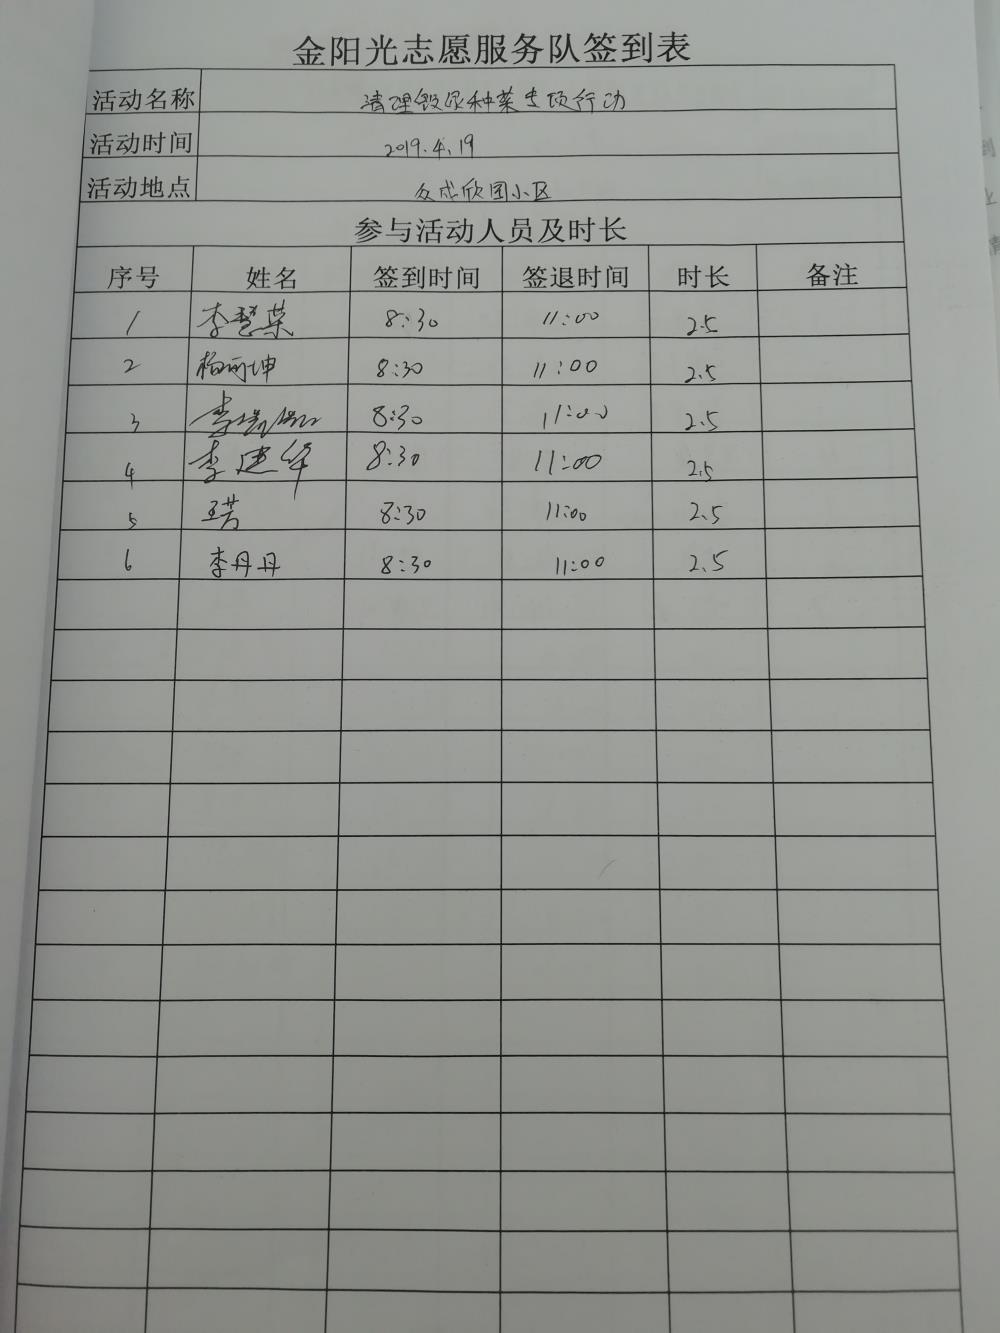 金阳光志愿服务队签到表
活动名称 清理毁绿种菜专项行动
活动时间 2019.4.19
活动地点 众成欣园小区
参与活动人员及时长
序号 姓名 签到时间 签退时间 时长 备注
1 李慧荣 8:30 11:00 2.5
2 杨丽坤 8:30 11:00 2.5
3 李 8:30 11:00 2.5
4 李建华 8:30 11:00 2.5
5 王芳 8:30 11:00 2.5
6 李丹丹 8:30 11:00 2.5